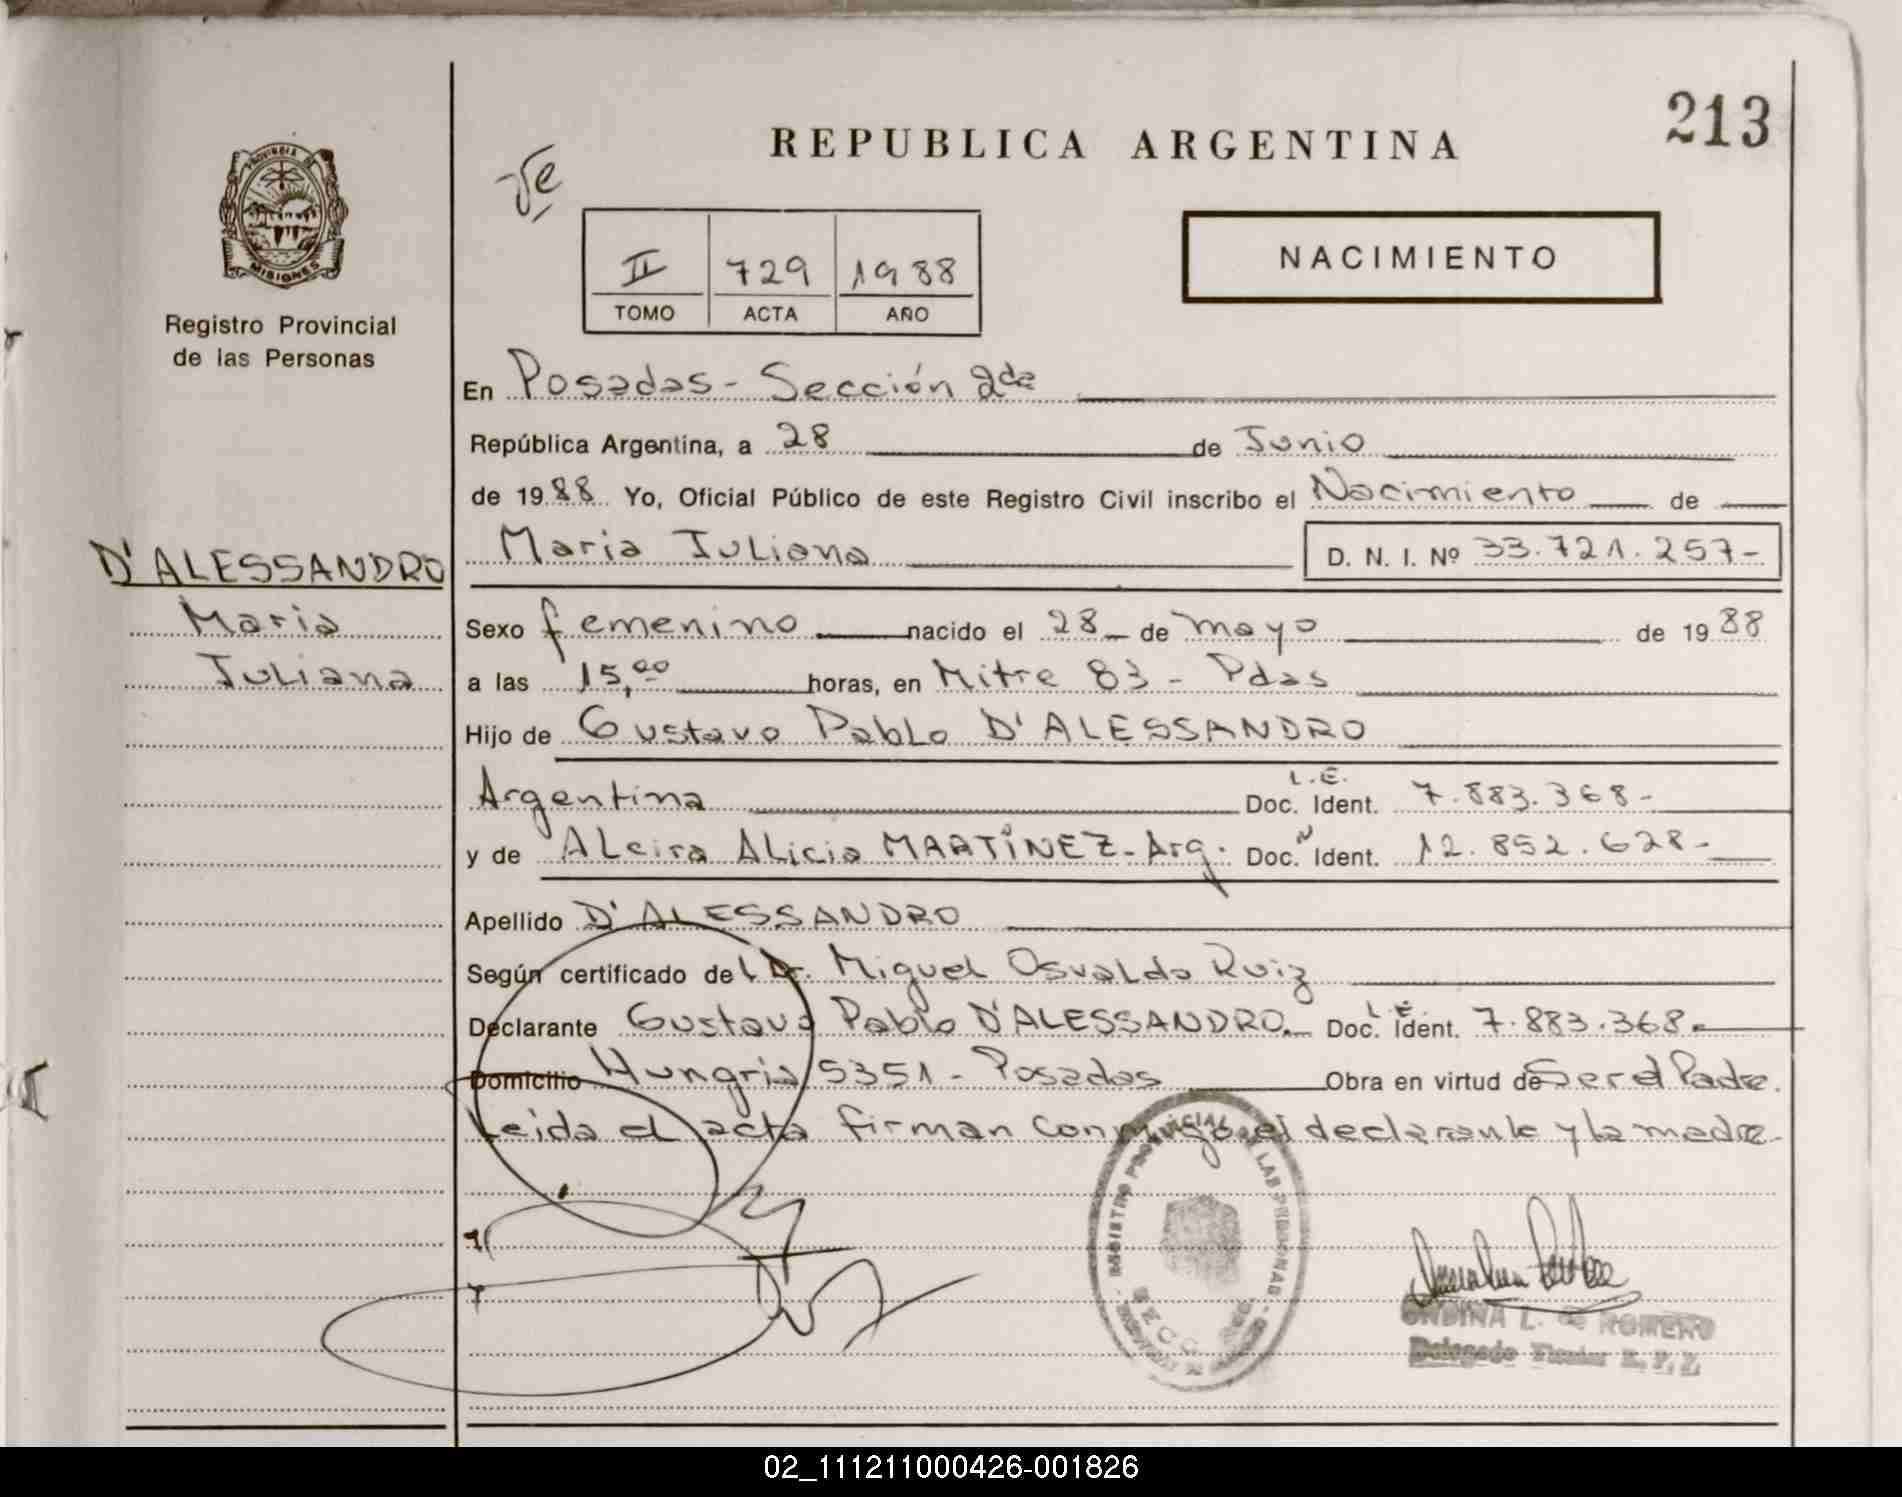 213
REPUBLICA ARGENTINA
PROVINCIA DE
MISIONES
Registro Provincial
de las Personas
II 729 1988
TOMO ACTA AÑO
NACIMIENTO
En Posadas - Sección 2da
República Argentina, a 28 de Junio
de 1988 Yo, Oficial Público de este Registro Civil inscribo el Nacimiento de
D'ALESSANDRO
Maria
Juliana
Maria Juliana D. N. I. Nº 33.721.257-
Sexo femenino nacido el 28 de mayo de 1988
a las 15,00 horas, en Mitre 83 - Pdas
Hijo de Gustavo Pablo D'ALESSANDRO
Argentina L.E. Doc. Ident. 7.883.368-
y de Alcira Alicia MARTÍNEZ - Arg. Doc. Ident. 12.852.628-
Apellido D'ALESSANDRO
Según certificado del Dr. Miguel Osvaldo Ruiz
Declarante Gustavo Pablo D'ALESSANDRO. L.E. Doc. Ident. 7.883.368-
Domicilio Hungria 5351 - Posadas Obra en virtud de Ser el Padre.
Leida el acta firman conmigo el declarante y la madre-
REGISTRO PROVINCIAL DE LAS PERSONAS
SECC
ONDINA L. de ROMERO
Delegado Titular R. P. P.
02_111211000426-001826